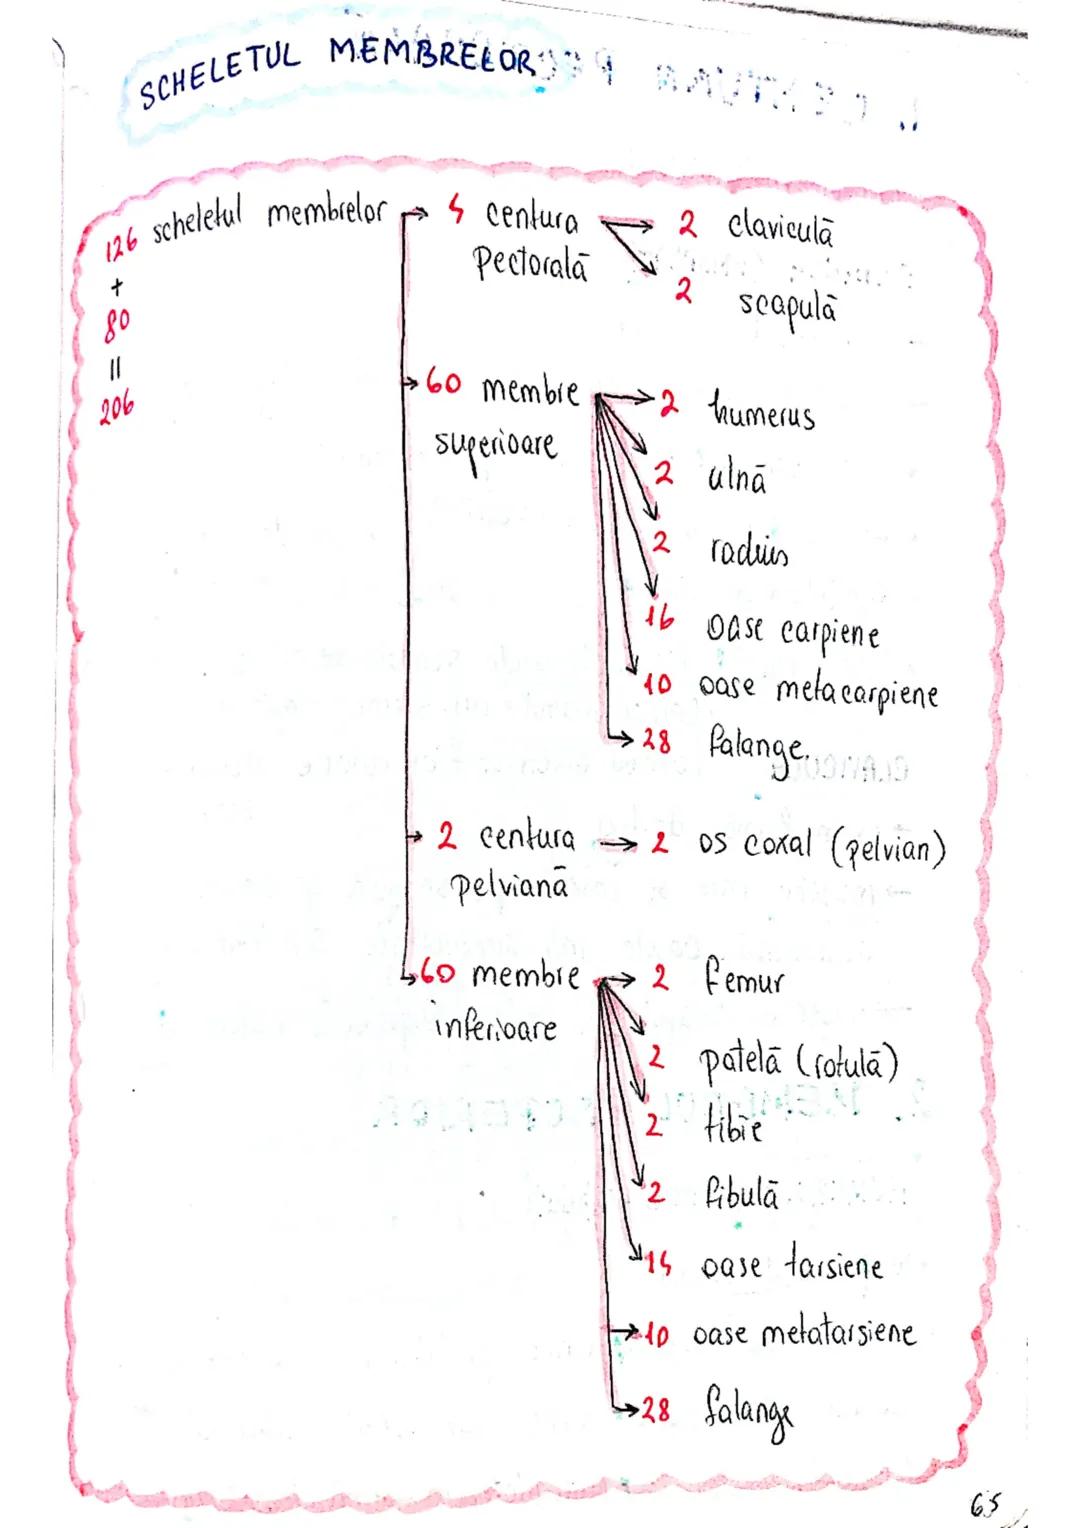 SCHELETUL MEMBRELOR
126 scheletul membrelor → 4 centura → 2 claviculă
pectorală
2 scapulă
+
80
||
206
→ 60 membre → 2 humerus
superioare
2 ulnă
2 radius
16 oase carpiene
10 oase metacarpiene
→ 28 falange.
→ 2 centura → 2 os coxal (pelvian)
pelviană
→ 60 membre → 2 femur
inferioare
2 patelă (rotulă)
2 tibie
2 fibulă
14 oase tarsiene
→ 10 oase metatarsiene
→ 28 falange